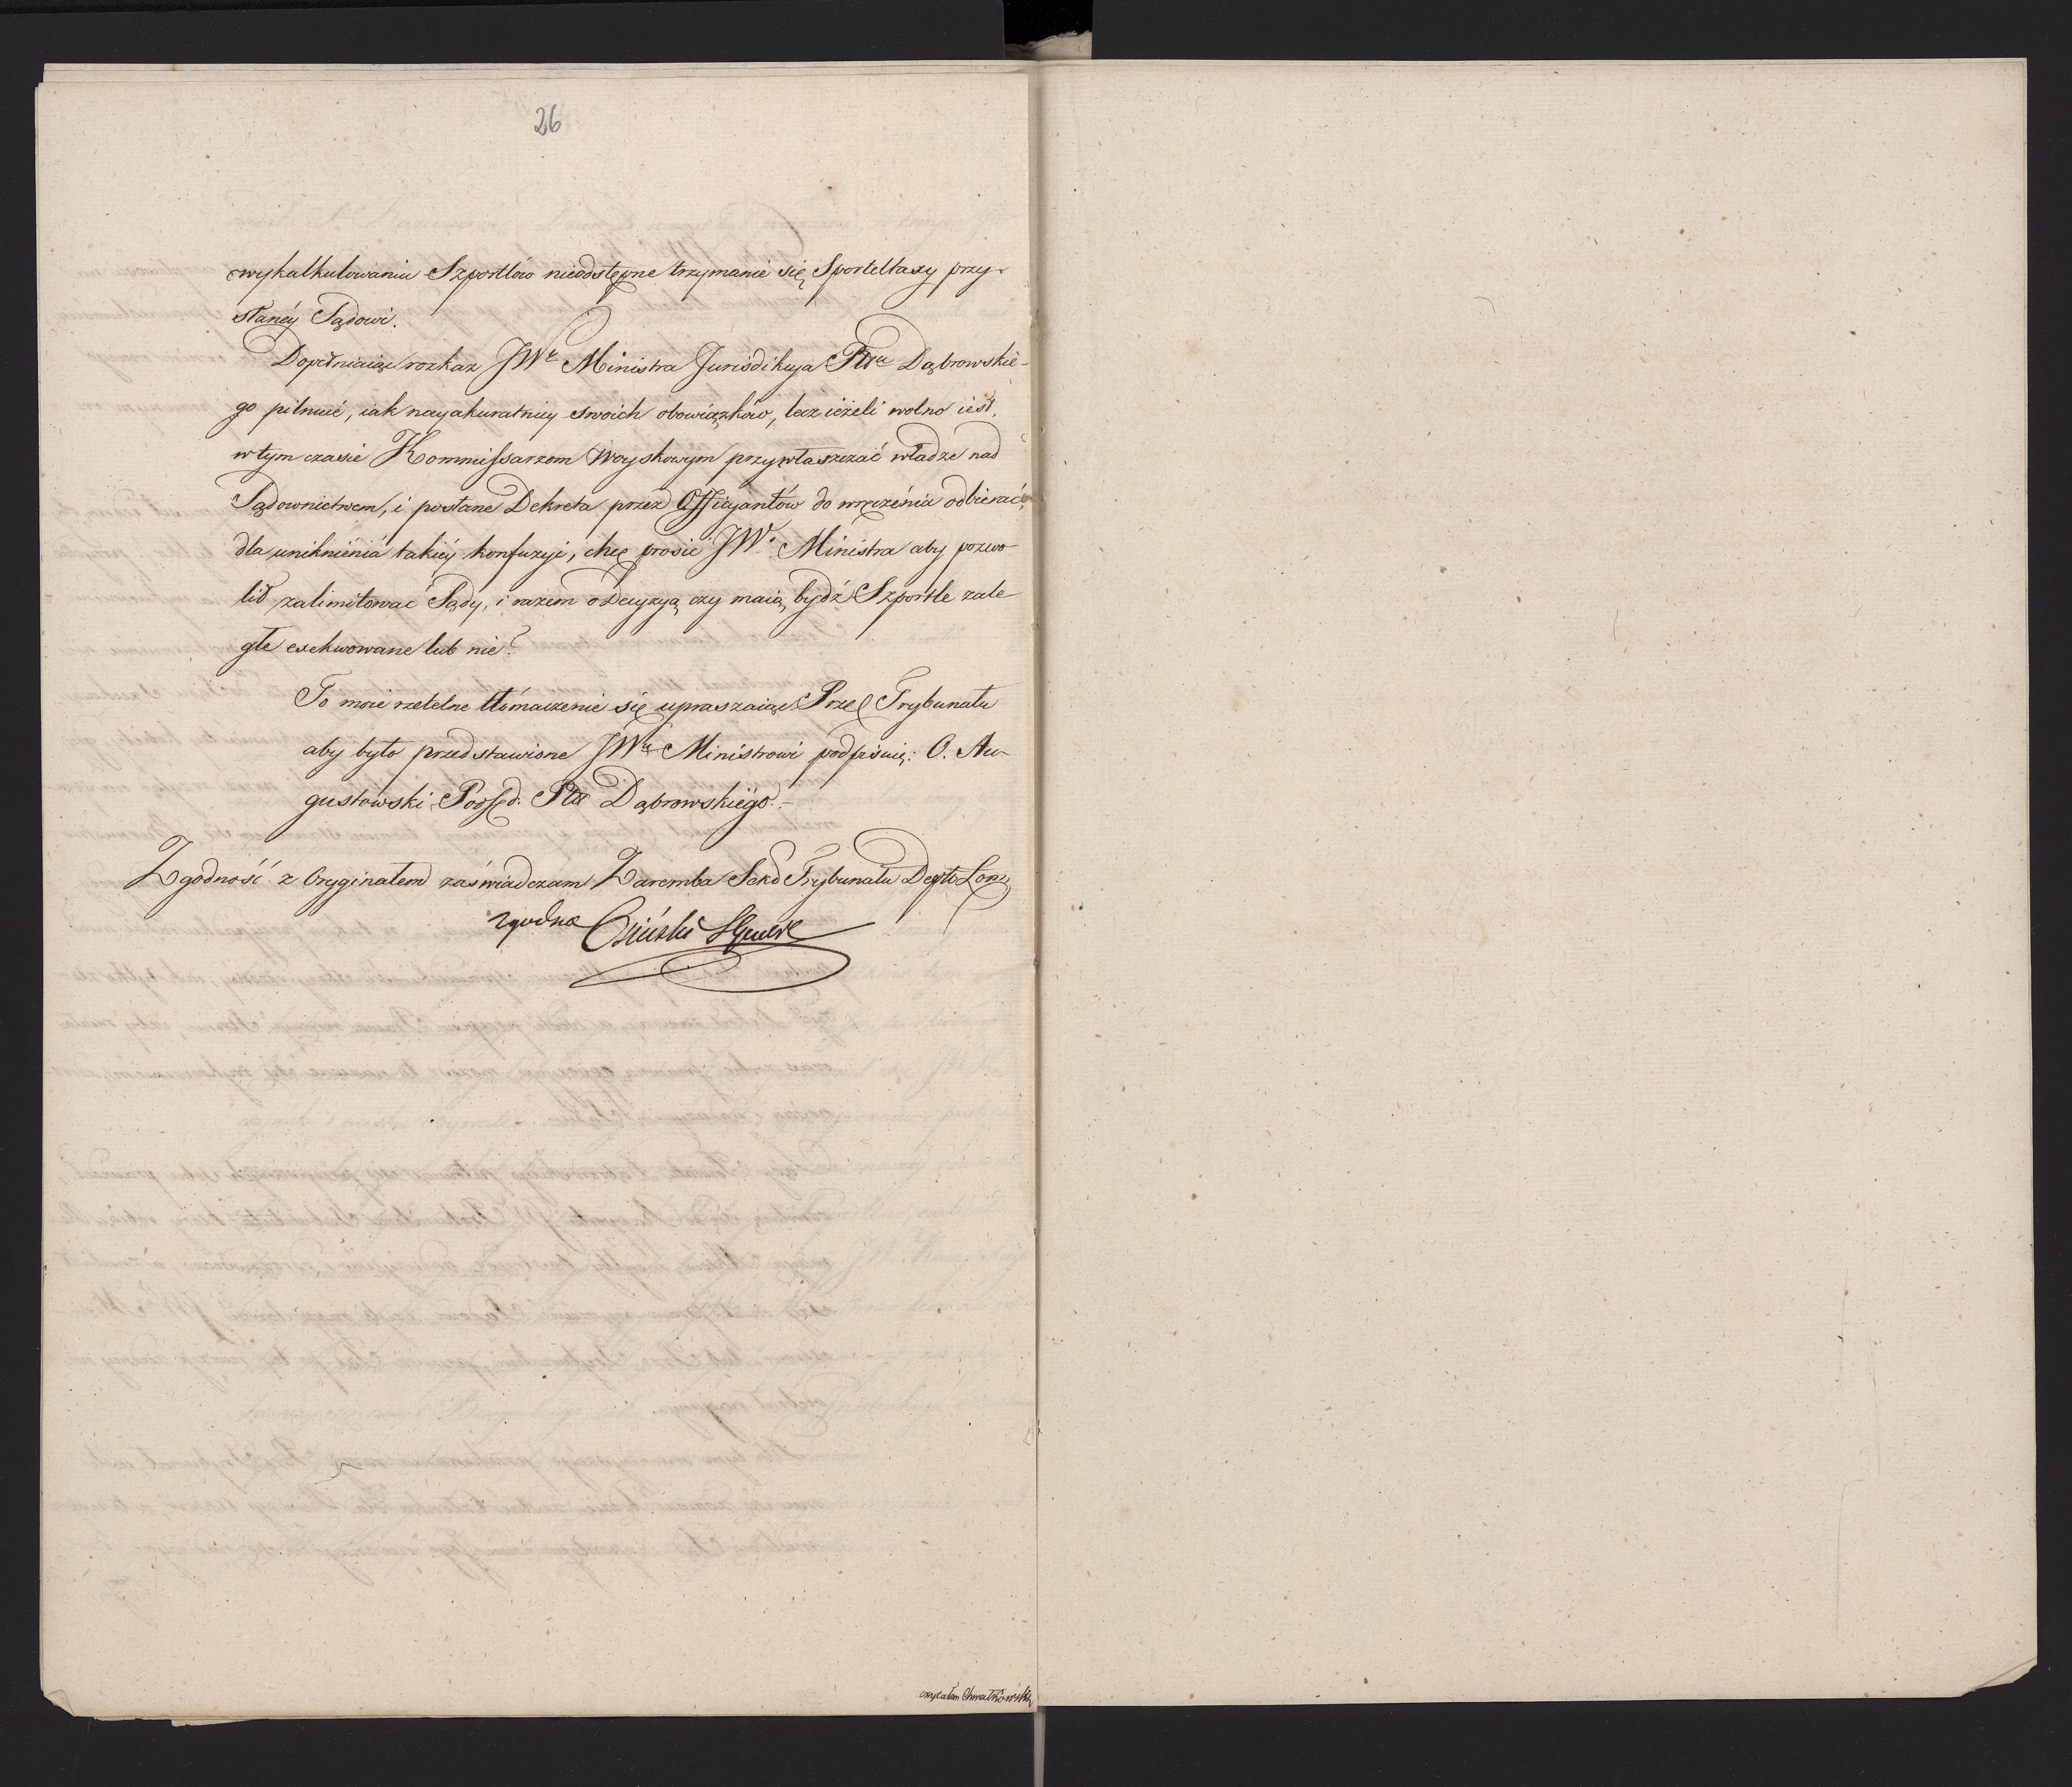 26
wykalkulowaniu Szportlów nieodstępne trzymanie się Sporteltaxy przy-
słanéy Sądowi.
Dopełniaiąc rozkaz JWo Ministra Jurisdikcya Pttu Dąbrowskie-
go pilnuié, iak nayakuratniey swoich obowiązków, lecz ieżeli wolno iest,
w tym czasie Kommissarzom Woyskowym przywłaszczać władze nad
Sądownictwem, i posłane Dekreta przez Officyantów do wręczenia odbierać,
dla uniknienia takiéy konfuzyi, chcę prosić JWo Ministra aby pozwo-
lił zalimitować Sądy, i razem o Decyzyą czy maią bydź Szportle zale-
głe exekwowane lub nie?
To moie rzetelne tłómaczenie się upraszaiąc Prze Trybunału
aby było przedstawione JWu Ministrowi podpisuię: O. Au-
gustowski Podsęd: Pttu Dąbrowskiego.-
Zgodność z Oryginałem zaświadczam Zaremba Sekr Trybunału Deptu Łomż
zgodno Osiński
czytałem Chwałkowski